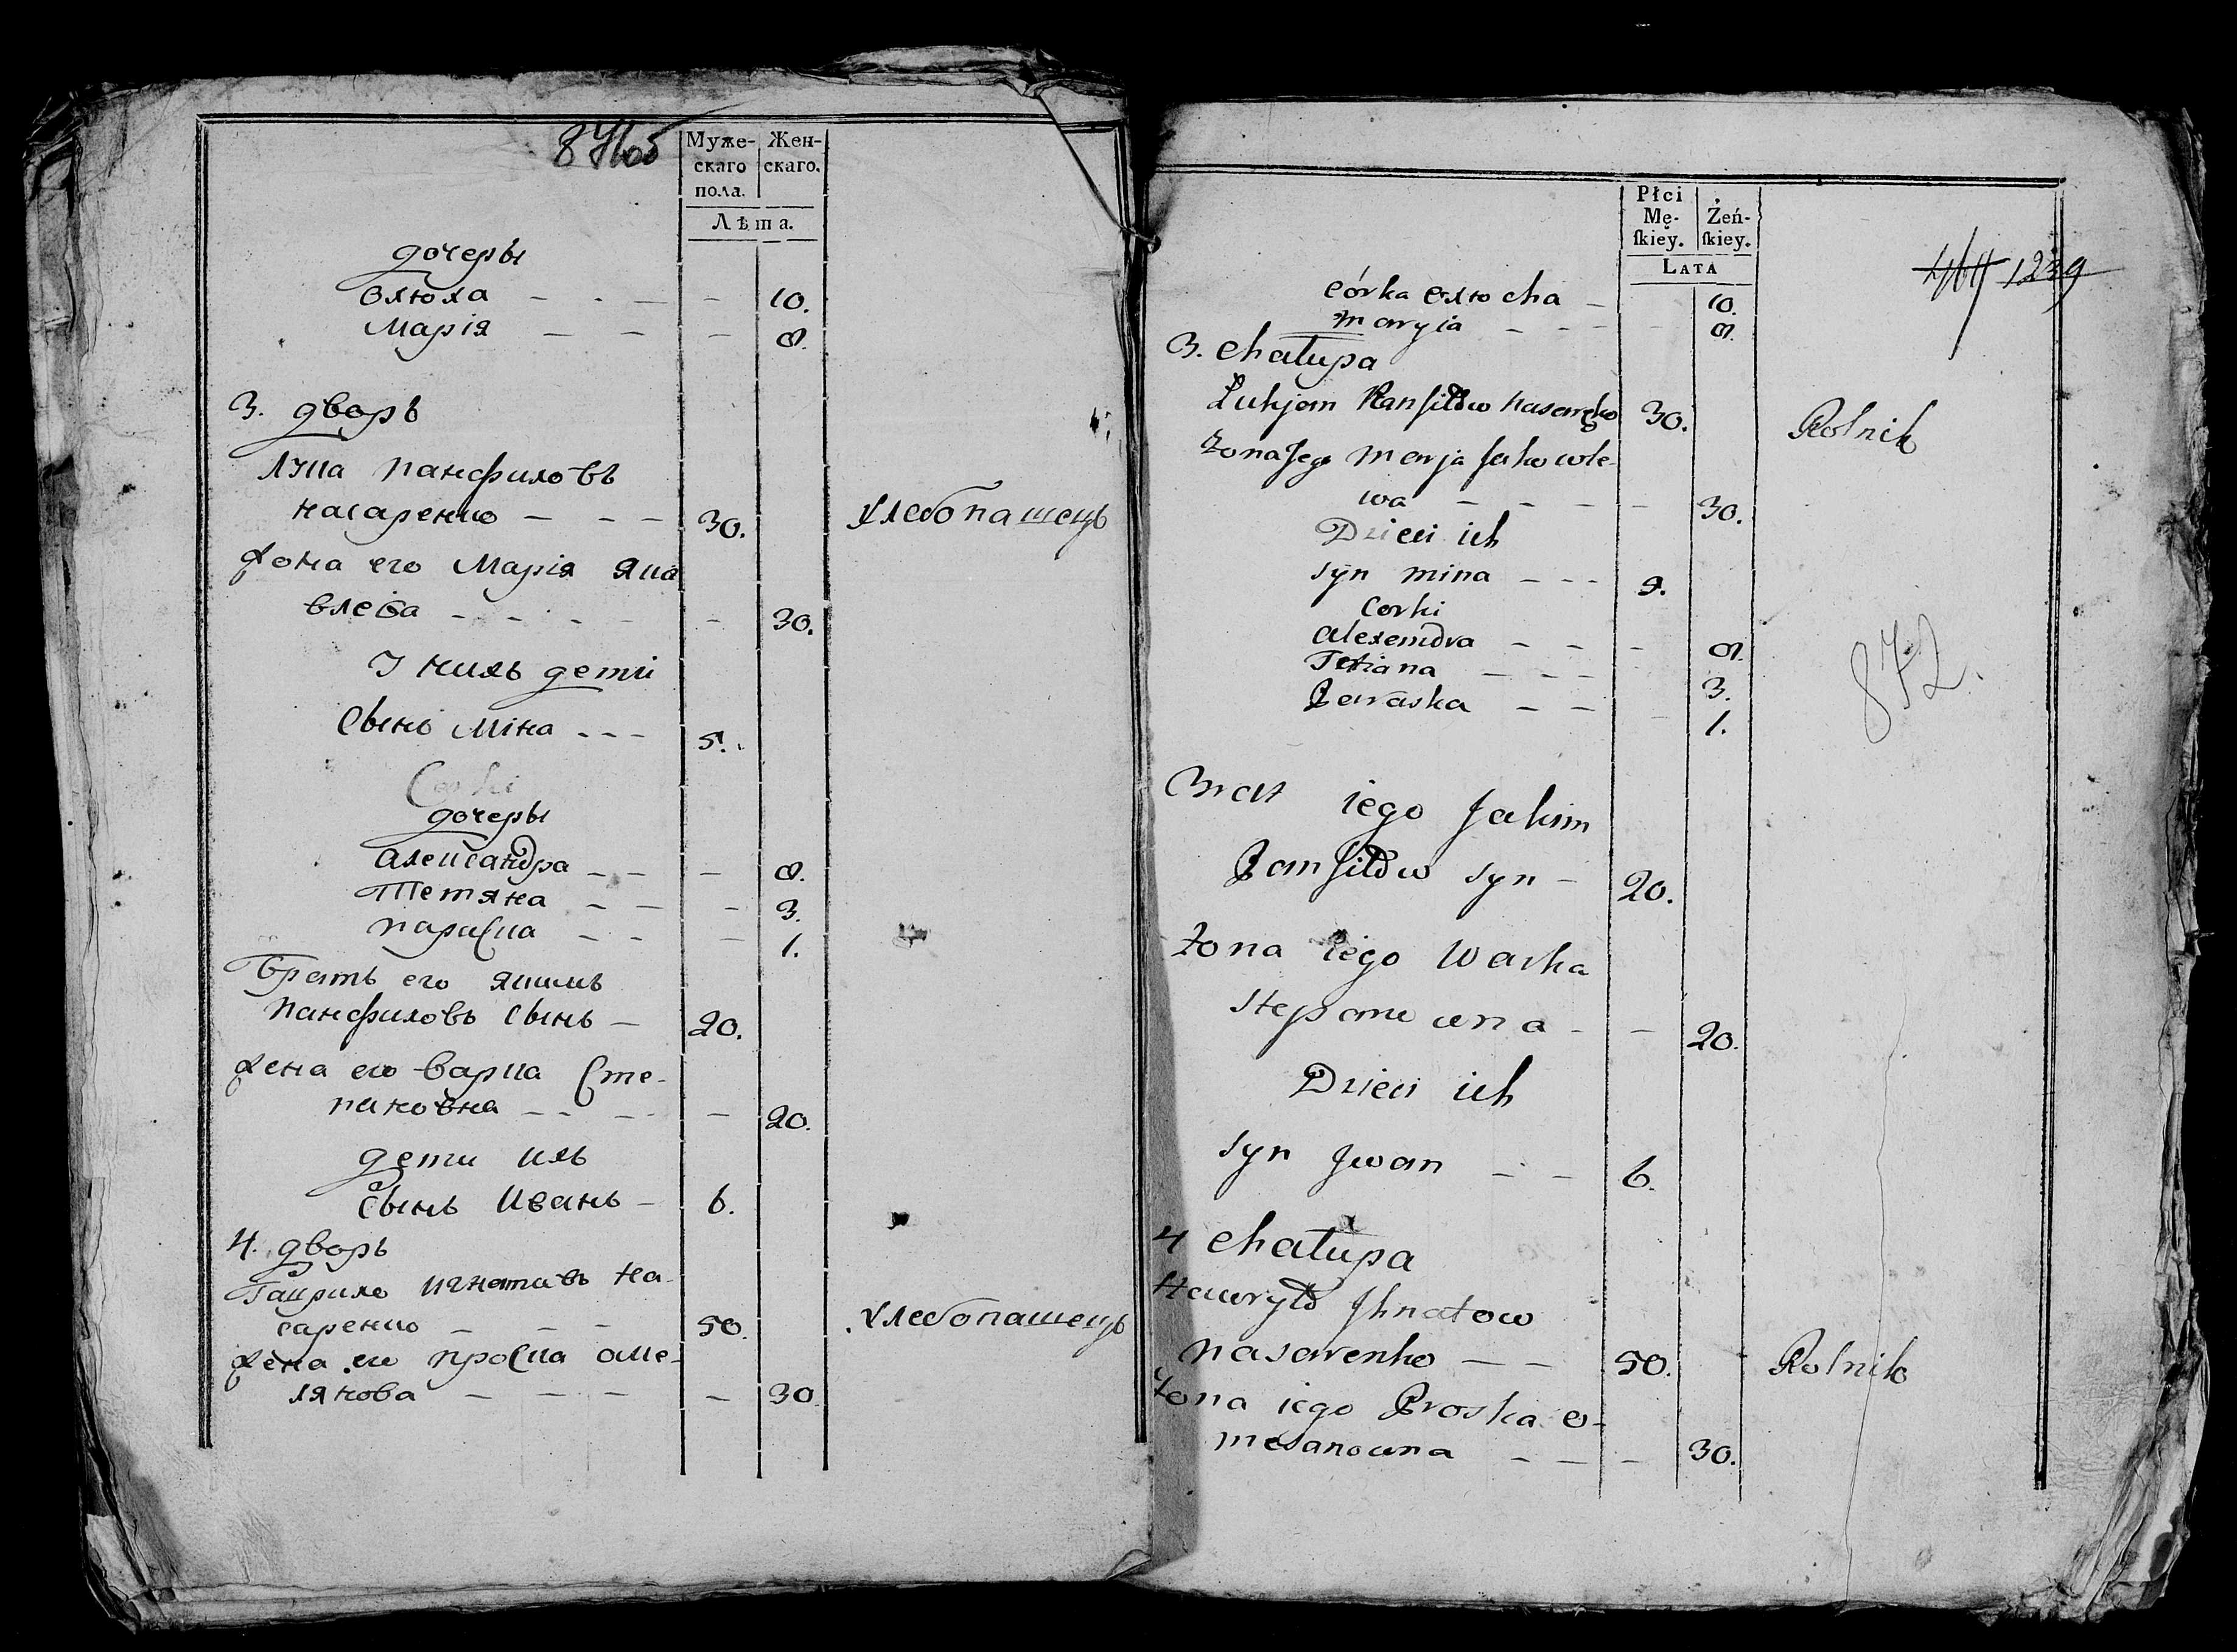 871об
Муже-
скаго
пола.
Жен-
скаго.
Лѣта.
дочеры
Олюха - - - - 10.
Марія - - - 8.
3. дворъ
Лука Панфиловъ
Насаренко - - - 30. хлебопашецъ
Жона его Марія Яка
влева - - - - 30.
У нихъ дети
Сынъ Міна - - - 5.
Corki
дочеры
Александра - - - 8.
Тетяна - - - 3.
Параска - - - 1.
Братъ его Якимъ
Панфиловъ сынъ - 20.
Жена его Варка Сте-
пановна - - - - 20.
дети ихъ
Сынъ Иванъ - 6.
4. дворъ
Гаврило Игнатовъ На-
саренко - - - 50. хлебопашецъ
Жена его Проска Оме-
лянова - - - - 30.
Płci
Mę-
ſkiey.
Żeń-
ſkiey.
LATA
1239
córka Олюcha - 10.
Maryia - - - - 8.
3. Chałupa
Łukjan Panfiłow Nasarenko 30. Rolnik
Żona Jego Marja Jakowle-
wa - - - - - 30.
Dzieci ich
Syn Mina - - - 9.
Corki
Alexandra - - - 8.
Tetiana - - - 3.
Paraska - - - 1.
Brat iego Jakim
Panfiłow syn - 20.
Żona iego Warka
Stepanowna - - 20.
Dzieci ich
Syn Jwan - - 6.
872.
4 Chałupa
Hawryło Jhnatow
Nasarenko - - 50. Rolnik
Żona iego Proska O-
melanowna - - - 30.